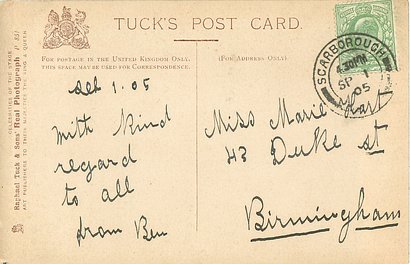 TUCK'S POST CARD.
FOR POSTAGE IN THE UNITED KINGDOM ONLY,
THIS SPACE MAY BE USED FOR CORRESPONDENCE.
(FOR ADDRESS ONLY.)
CELEBRITIES OF THE STAGE
Raphael Tuck & Sons' "Real Photograph" P. 251.
ART PUBLISHERS TO THEIR MAJESTIES THE KING & QUEEN
SCARBOROUGH
SP 1
05
1.05
With kind
regard
to all
from Ben
Miss Marie Hart
43 Duke st
Birmingham